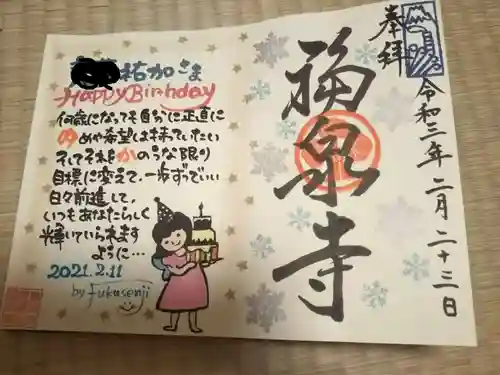 祐加さま
Happy Birthday
何歳になっても自分に正直に
めや希望は持っていたい
そしてそれをかのうな限り
目標に変えて、一歩ずつでいい
日々前進して、
いつもあなたらしく
輝いていられます
ように…
2021.2.11
by Fukusenji
奉拝
福泉寺
令和三年二月二十三日